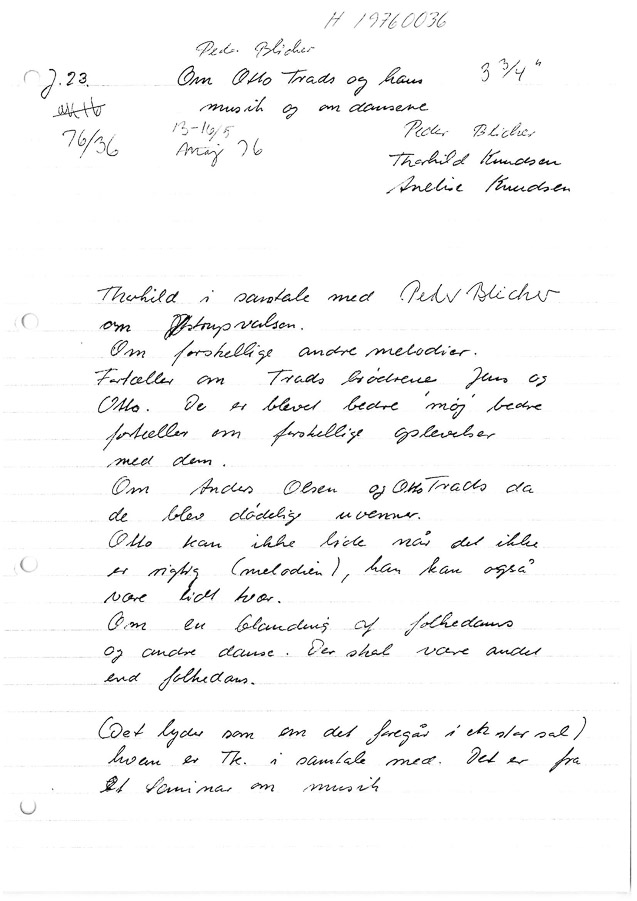 H 19760036
Peder Blicher
J. 23. Om Otto Trads og hans 3 3/4"
musik og om dansene
76/36
13-16/5
maj 76
Peder Blicher
Thorkild Knudsen
Anelise Knudsen
Thorkild i samtale med Peder Blicher
om Østrupvalsen.
Om forskellige andre melodier.
Fortæller om Trads brødrene Jens og
Otto. De er blevet bedre 'møj' bedre
fortæller om forskellige oplevelser
med dem.
Om Anders Olsen og Otto Trads da
de blev dødelig uvenner.
Otto kan ikke lide når det ikke
er rigtig (melodien), han kan også
være lidt tvær.
Om en blanding af folkedans
og andre danse. Der skal være andet
end folkedans.
(Det lyder som om det foregår i et stor sal)
hvem er Tk. i samtale med. Det er fra
et Seminar om musik